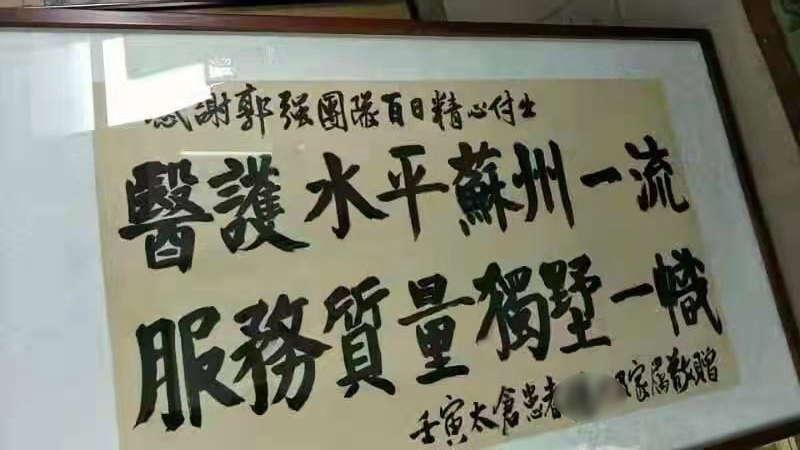 感謝郭强團隊百日精心付出
醫護水平蘇州一流
服務質量獨墅一幟
壬寅太倉患者家属敬贈